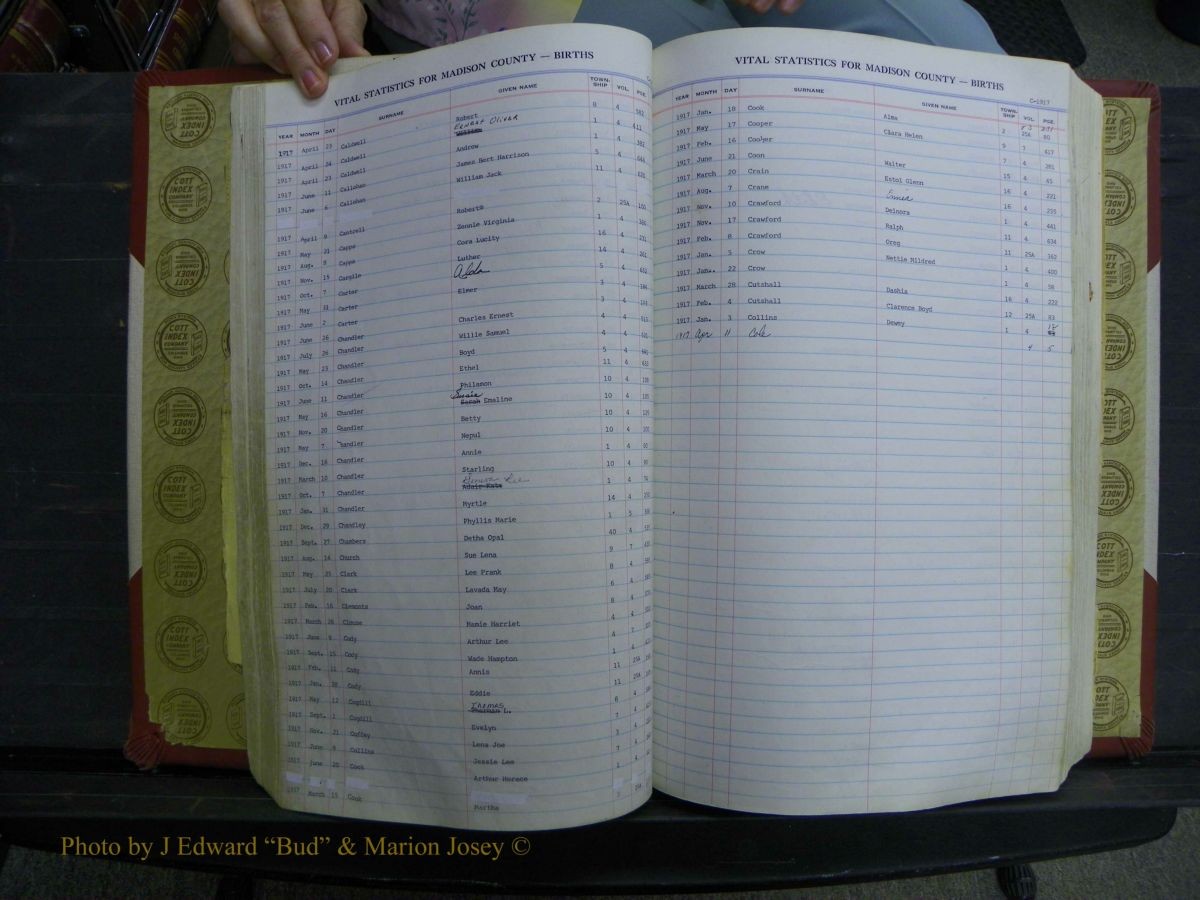 VITAL STATISTICS FOR MADISON COUNTY — BIRTHS
YEAR MONTH DAY SURNAME GIVEN NAME TOWNSHIP VOL. PGE.
1917 April 23 Caldwell Robert 8 4 582
1917 April 24 Caldwell Ernest Oliver 1 4 411
1917 April 23 Caldwell Andrew 1 4 382
1917 June 11 Callahan James Bert Harrison 5 4 644
1917 June 6 Callahan William Jack 11 4 620
1917 April 9 Cantrell 2 25A 100
1917 May 21 Capps Zennie Virginia 1 4 386
1917 Aug. 8 Capps Cora Lucity 16 4 231
1917 Nov. 19 Cargile Luther 14 4 261
1917 Oct. 7 Carter Alda 5 4 652
1917 May 31 Carter Elmer 1 4 184
1917 June 2 Carter 3 4 103
1917 June 26 Chandler Charles Ernest 4 4
1917 July 26 Chandler Willie Samuel 4 4
1917 May 23 Chandler Boyd 5 4
1917 Oct. 14 Chandler Ethel 11 4 633
1917 June 11 Chandler Philamon 10 4 108
1917 May 16 Chandler Susie Sarah Emaline 10 4 105
1917 Nov. 20 Chandler Betty 10 4 105
1917 May 7 Chandler Nepul 10 4 100
1917 Dec. 18 Chandler Annie 1 4 93
1917 March 10 Chandler Starling 10 4
1917 Oct. 7 Chandler Geneva Lee Adair Kate 1 4
1917 Jan. 31 Chandler Myrtle 14 4
1917 Dec. 29 Chandley Phyllis Marie 1 5
1917 Sept. 27 Chambers Detha Opal 40 4
1917 Aug. 14 Church Sue Lena 9 7
1917 May 21 Clark Lee Frank 8 4
1917 July 20 Clark Lavada May 6 4
1917 Feb. 16 Clements Joan 8 4
1917 March 26 Clouse Mamie Harriet 4 4
1917 June 6 Cody Arthur Lee 4 7
1917 Sept. 15 Cody Wade Hampton 1 4
1917 Feb. 11 Cody Annis 11 25A
1917 Jan. Cody Eddie 11 25A
1917 May 12 Cogdill Thomas L. 6 4
1917 Sept. 1 Cogdill Evelyn 7 4
1917 Nov. 21 Coffey Lena Joe 3 4
1917 June 9 Collins Jessie Lee 7 4
1917 June 20 Cook Arthur Horace 1 4
1917 March 15 Cook Martha 25A
VITAL STATISTICS FOR MADISON COUNTY — BIRTHS
C-1917
YEAR MONTH DAY SURNAME GIVEN NAME TOWNSHIP VOL. PGE.
1917 Jan. 18 Cook Alma 2 25A 80
1917 May 17 Cooper Chara Helen 9 7 617
1917 Feb. 16 Cooper 7 4 281
1917 June 21 Coon Walter 15 4 45
1917 March 20 Crain Estel Glenn 16 4 221
1917 Aug. 7 Crane 16 4 255
1917 Nov. 10 Crawford Delnora 1 4 441
1917 Nov. 17 Crawford Ralph 11 4 634
1917 Feb. 8 Crawford Oreg 11 25A 162
1917 Jan. 5 Crow Nettie Mildred 1 4 400
1917 Jan. 22 Crow 1 4 58
1917 March 28 Cutshall Dashia 16 4 222
1917 Feb. 4 Cutshall Clarence Boyd 12 25A 83
1917 Jan. 3 Collins Dewey 1 4
1917 Apr 11 Cole 4 5
COTT INDEX COMPANY
Photo by J Edward “Bud” & Marion Josey ©